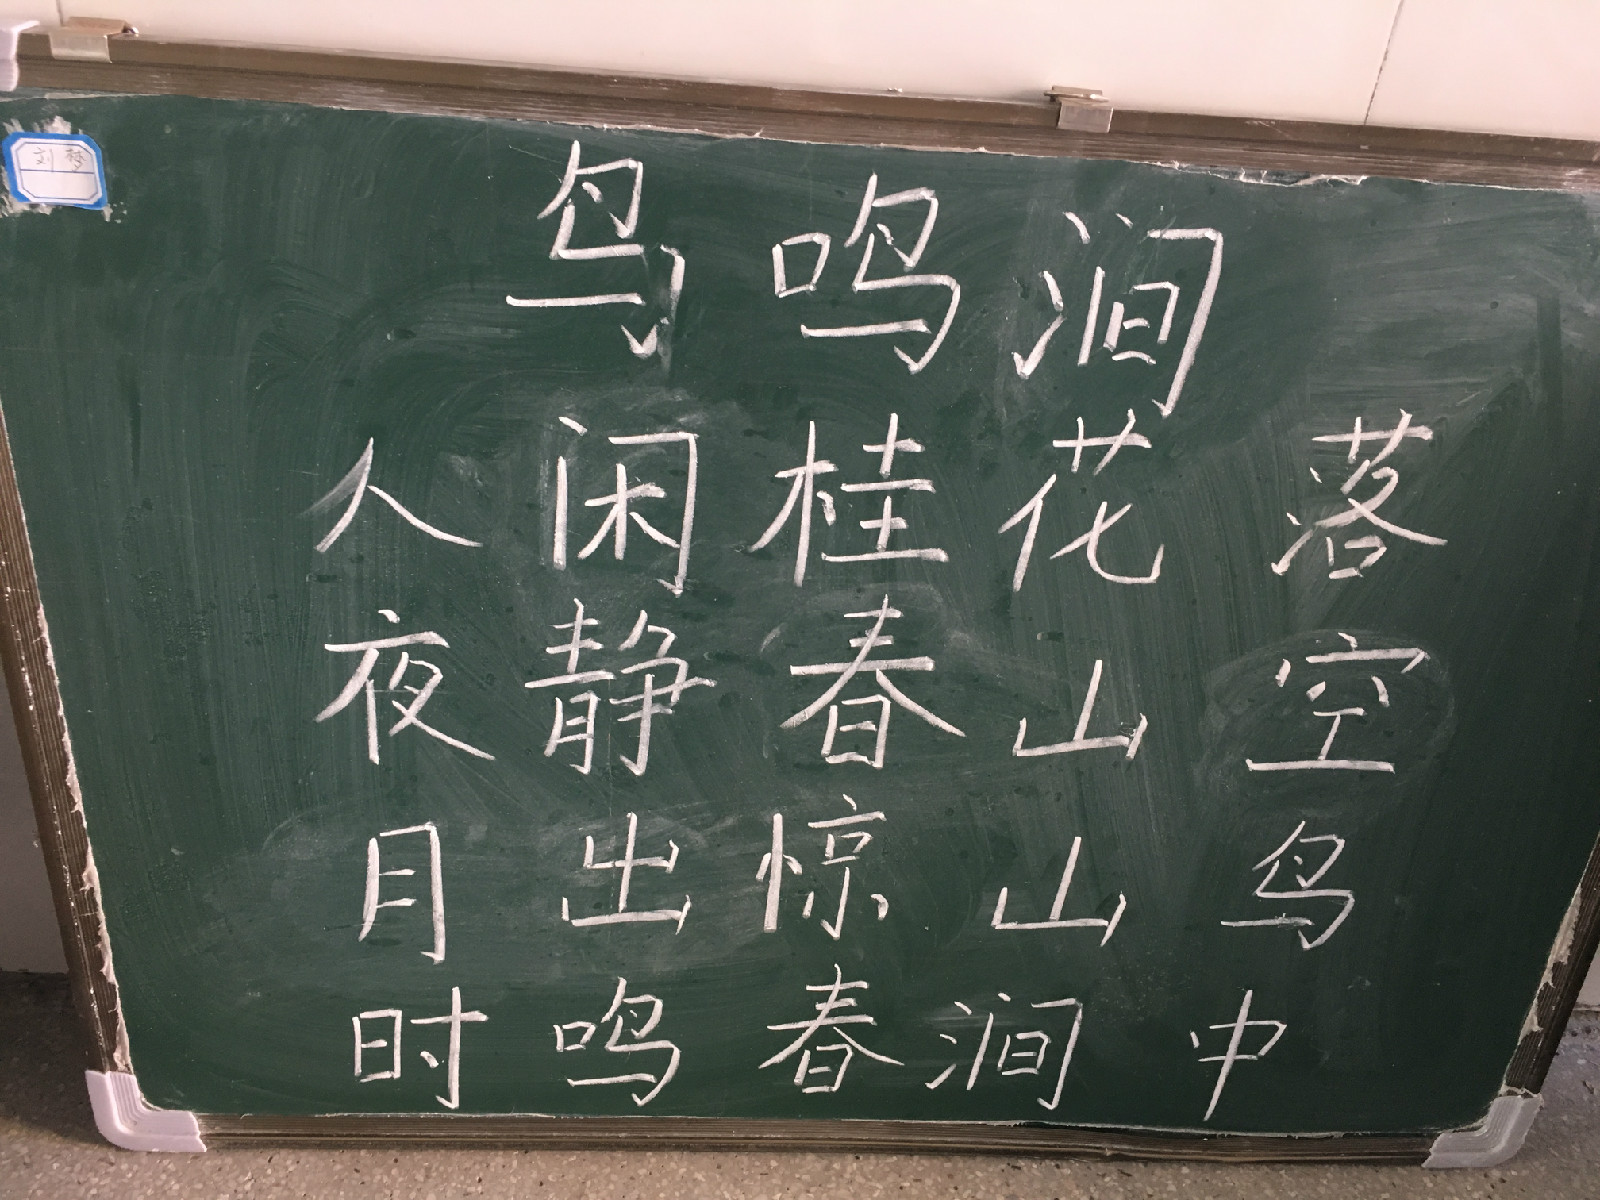 刘梦
鸟鸣涧
人闲桂花落
夜静春山空
月出惊山鸟
时鸣春涧中